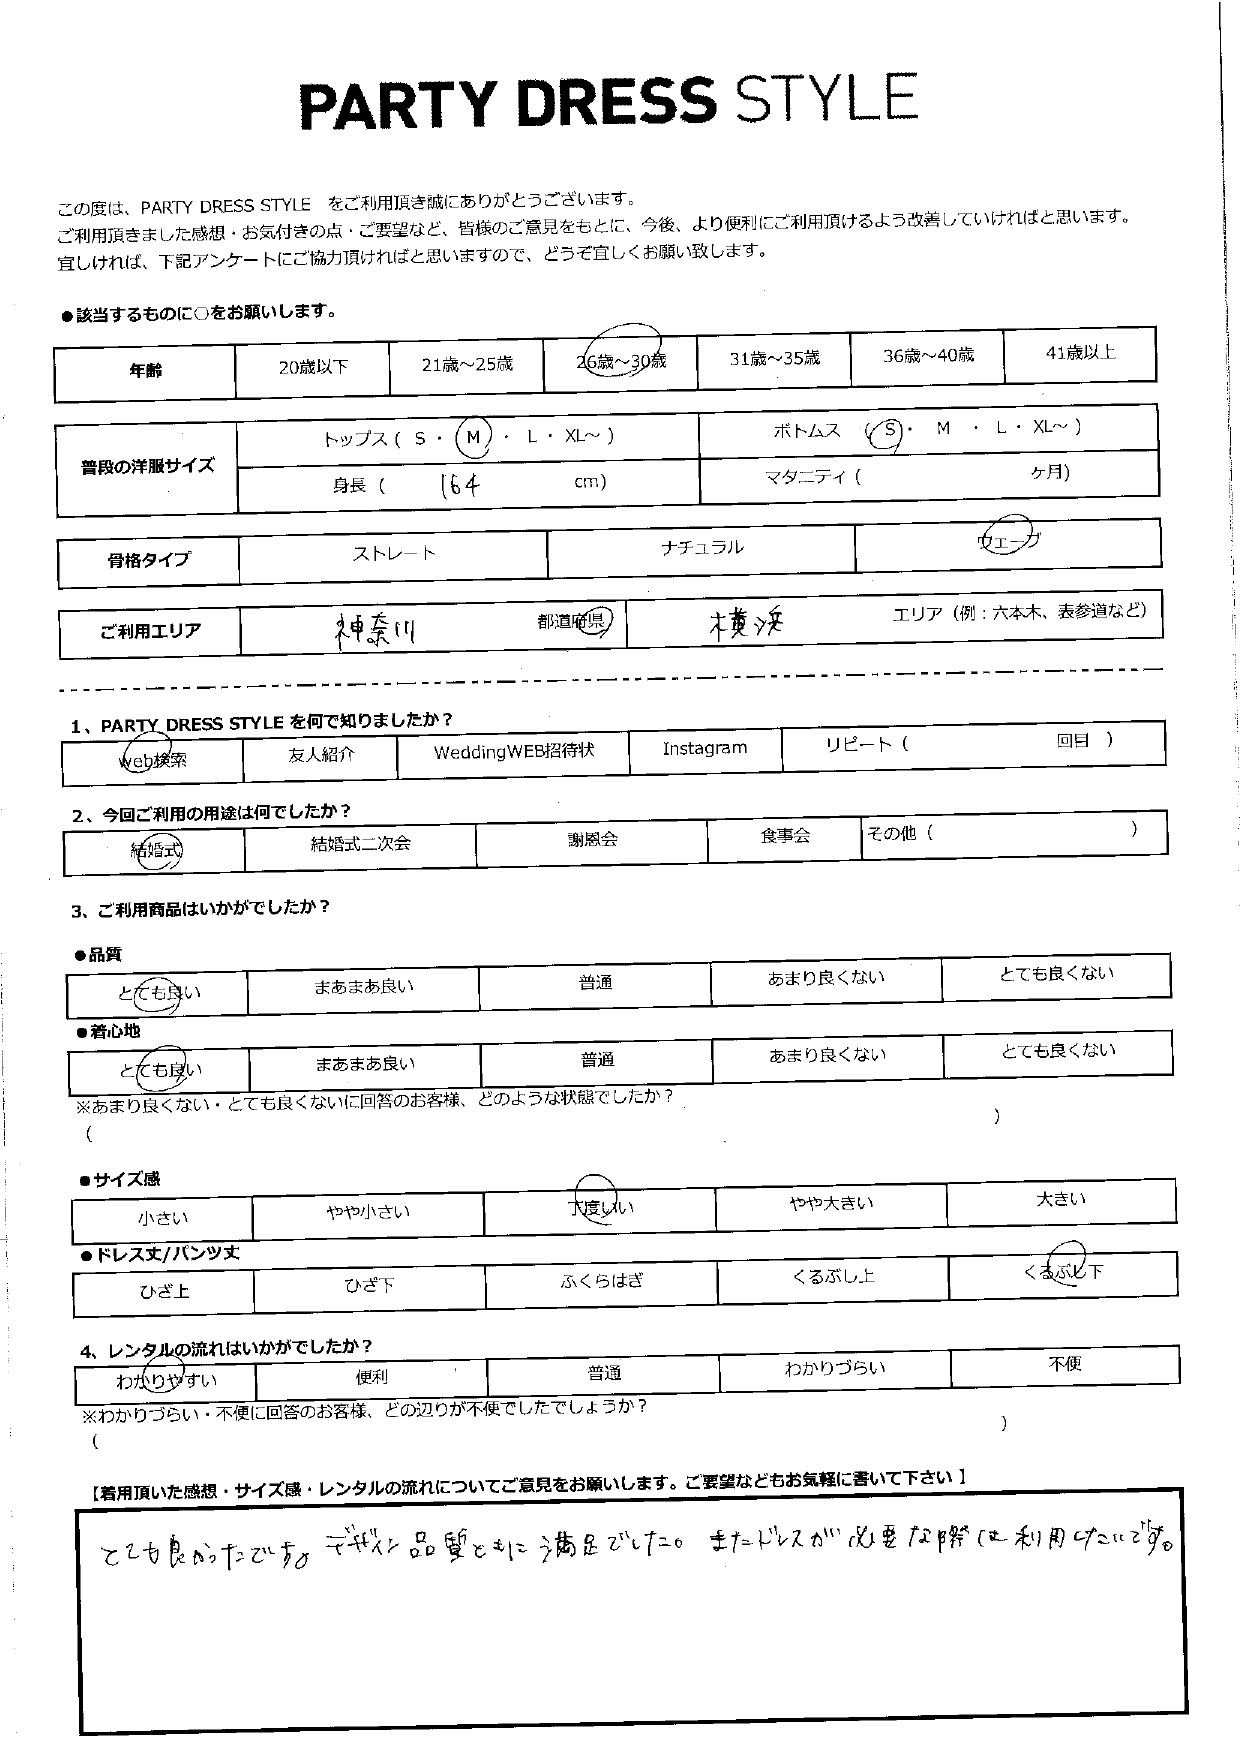 PARTY DRESS STYLE
この度は、PARTY DRESS STYLE をご利用頂き誠にありがとうございます。
ご利用頂きました感想・お気付きの点・ご要望など、皆様のご意見をもとに、今後、より便利にご利用頂けるよう改善していければと思います。
宜しければ、下記アンケートにご協力頂ければと思いますので、どうぞ宜しくお願い致します。
●該当するものに○をお願いします。
年齢 20歳以下 21歳～25歳 26歳～30歳 31歳～35歳 36歳～40歳 41歳以上
普段の洋服サイズ トップス ( S ・ M ・ L ・ XL～ ) ボトムス ( S ・ M ・ L ・ XL～ )
身長 ( 164 cm) マタニティ ( ヶ月)
骨格タイプ ストレート ナチュラル ウェーブ
ご利用エリア 神奈川 都道府県 横浜 エリア（例：六本木、表参道など）
1、PARTY DRESS STYLE を何で知りましたか？
web検索 友人紹介 WeddingWEB招待状 Instagram リピート ( 回目 )
2、今回ご利用の用途は何でしたか？
結婚式 結婚式二次会 謝恩会 食事会 その他 ( )
3、ご利用商品はいかがでしたか？
●品質
とても良い まあまあ良い 普通 あまり良くない とても良くない
●着心地
とても良い まあまあ良い 普通 あまり良くない とても良くない
※あまり良くない・とても良くないに回答のお客様、どのような状態でしたか？
( )
●サイズ感
小さい やや小さい 丁度いい やや大きい 大きい
●ドレス丈/パンツ丈
ひざ上 ひざ下 ふくらはぎ くるぶし上 くるぶし下
4、レンタルの流れはいかがでしたか？
わかりやすい 便利 普通 わかりづらい 不便
※わかりづらい・不便に回答のお客様、どの辺りが不便でしたでしょうか？
( )
【着用頂いた感想・サイズ感・レンタルの流れについてご意見をお願いします。ご要望などもお気軽に書いて下さい 】
とても良かったです。デザイン品質ともに満足でした。またドレスが必要な際は利用したいです。